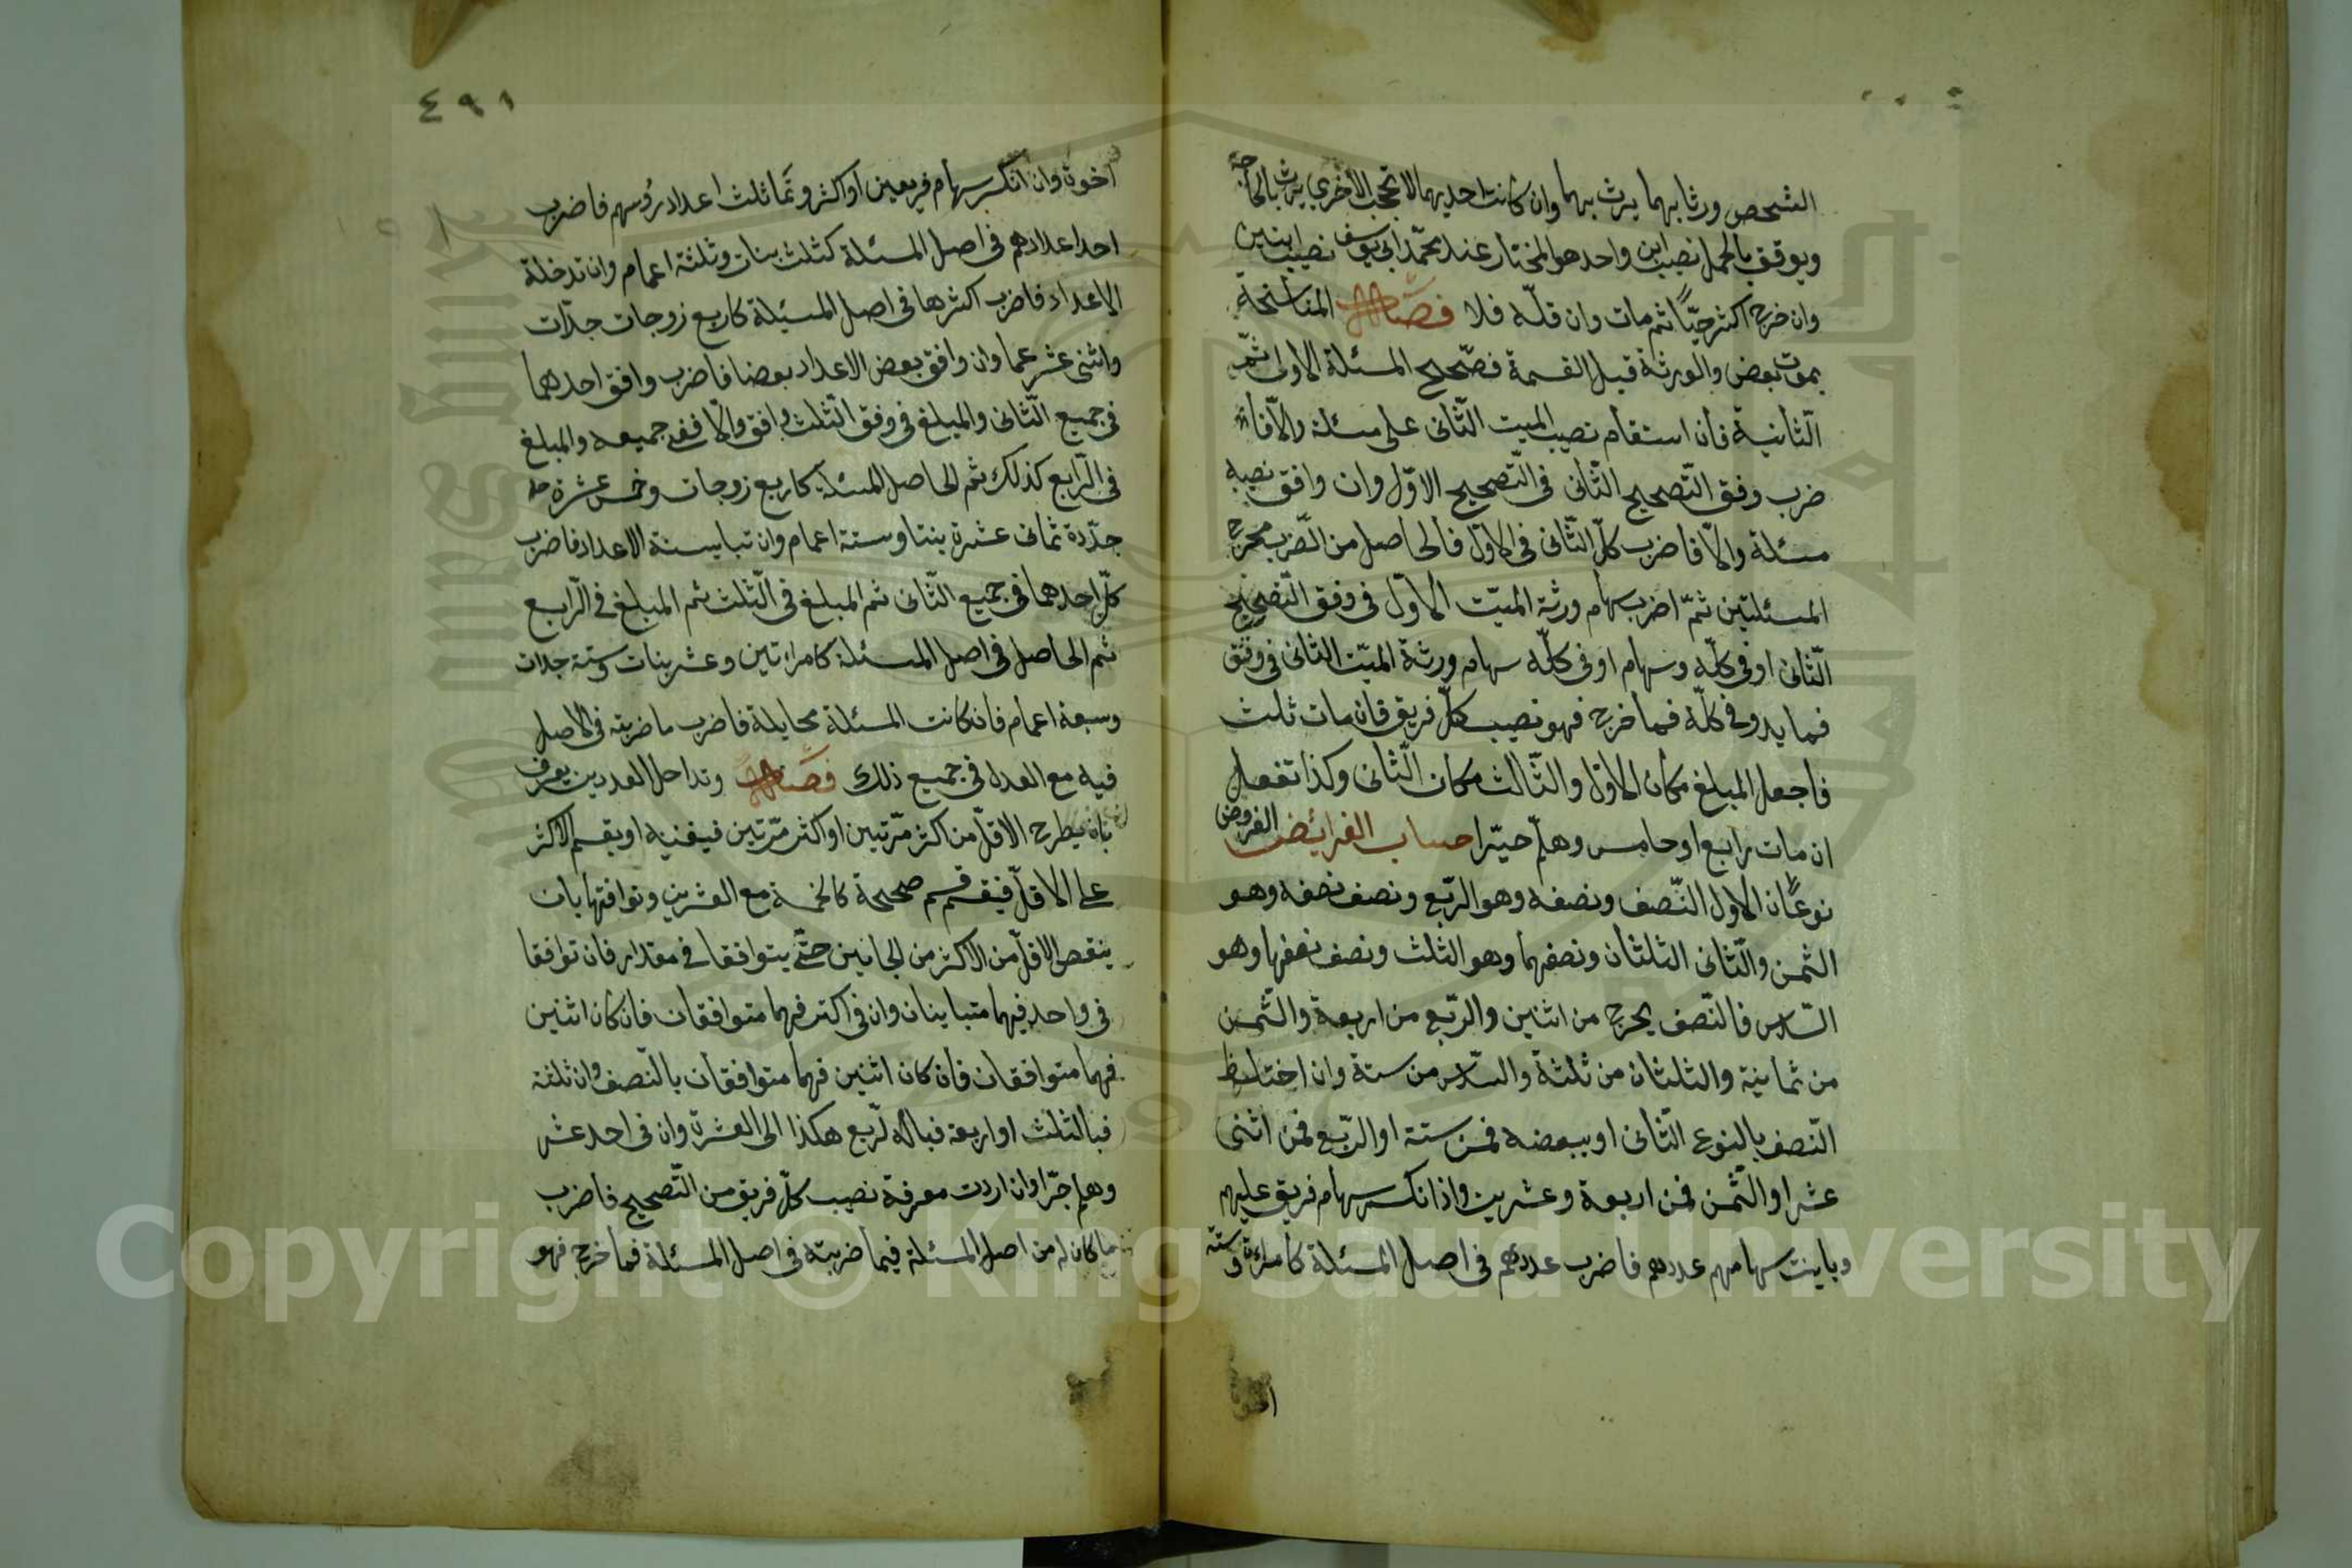 الشخص ورثا بهما يرث بهما وان كانت احديهما لا تحجب الأخري يرث بالحاجبة
ويوقف بالحمل نصيب ابن واحد هو المختار عند محمد ابى يوسف نصيب ابنين
وان خرج اكثر حيّا ثم مات وان قلّه فلا فصل المناسخة
يموت بعض والورثة قبل القسمة فصّحح المسئلة الاولى ثمّ
الّثانية فأن استقام نصيب الميت الّثانى على مسئلة والاّ فأن
ضرب وفق التّصحيح الثّانى فى التّصحيح الاوّل وان وافق نصيبه
مسئلة والاّ فاضرب كلّ الثّانى فى الاوّل فألحاصل من الضّرب مخرج
المسئلتين ثمّ اضرب سهام ورثة الميّت الاوّل فى وفق التّصحيح
الثّانى او فى كلّه وسهام او فى كلّه سهام ورثة الميّت الثانى فى وفق
فما يده وفى كلّه فما خرج فهو نصيب كلّ فريق فان مات ثلث
فأجعل المبلغ مكان الاوّل والثّالث مكان الّثانى وكذا تفعل
ان مات رابع او خامس وهلمّ جرّا حساب الفرائض الفروض
نوعان الاول النّصف ونصفه وهو الربّع ونصف نصفه وهو
الثمن والّثانى الثلثان ونصفهما وهو الثلث ونصف نصفها وهو
السّدس فالنّصف يخرج من اثنين والربّع من اربعة والثّمن
من ثمانية والثلثان من ثلثة والسّدس من ستة وان اختلط
النّصف بالنوع الثّانى او ببعضه فمن ستة او الربّع فمن اثنى
عشر او الثّمن فمن اربعة وعشرين واذا انكسر سهام فريق عليهم
وباينت سهامهم عددهم فاضرب عددهم فى اصل المسئلة كأمراة وستة
٤٩١
اخوة وان انكسر سهام فريقين او اكثر وتماثلث اعداد رؤسهم فاضرب
احد اعدادهم فى اصل المسئلة كثلث بنات وثلثة اعمام وان تدخلة
الاعداد فاضرب اكثرها فى اصل المسئلة كاربع زوجات جدّات
واثنى عشر عما وان وافق بعض الاعداد بعضا فاضرب وافق احدهما
فى جميع الّثانى والمبلغ فى وفق الثّلث وافق والاّ ففى جميعه والمبلغ
فى الّرابع كذلك ثم الحاصل المسئلة كاربع زوجات وخمس عشرة
جدّدة ثمانى عشرة بنتا وستة اعمام وان تباينة الاعداد فاضرب
كلّ احدهما فى جميع الثّانى ثم المبلغ فى الثّلث ثم المبلغ فى الّرابع
ثم الحاصل فى اصل المسئلة كامراتين وعشر بنات وستة جدات
وسبعة اعمام فان كانت المسئلة فاضرب ما ضربته فى الاصل
فيه مع العدل فى جميع ذلك فصل وتداخل العددين يعرف
بان يطرح الاقلّ من اكثر مرّتين او اكثر مرّتين فيفنيه او يقسم الاكثر
على الاقلّ فينقسم قسم صحيحة كالخمسة مع العشرين وتوافقها بان
ينقص الاقلّ من الاكثر من الجانبين حتّى يتوافقا فى مقدار فان توافقا
فى واحد فهما متباينان وان فى اكثر فهما متوافقان فان كان اثنين
فهما متوافقان فأن كان اثنين فهما متوافقان بالنّصف وان ثلثة
فبالثلث او اربعة فبالرّبع هكذا الى العشرة وان فى احد عشر
وهلم جرّا وان اردت معرفة نصيب كلّ فريق من التّصحيح فاضرب
ما كان له من اصل المسئلة فيما ضربته فى اصل المسئلة فما خرج فهو
Copyright © King Saud University